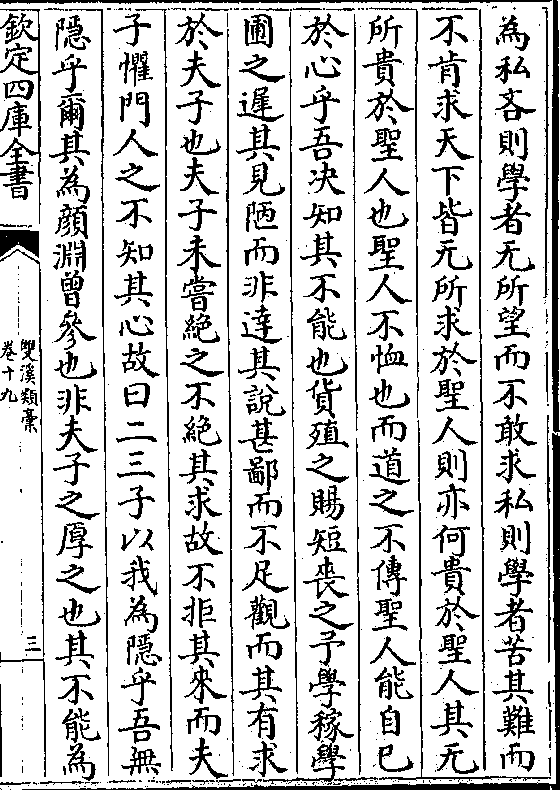 為私吝則學者无所望而不敢求私則學者苦其難而
不肯求天下皆无所求於聖人則亦何貴於聖人其无
所貴於聖人也聖人不恤也而道之不傳聖人能自已
於心乎吾决知其不能也貨殖之賜短喪之予學稼學
圃之遲其見陋而非達其說甚鄙而不足觀而其有求
於夫子也夫子未嘗絶之不絶其求故不拒其來而夫
子懼門人之不知其心故曰二三子以我為隱乎吾無
隱乎爾其為顔淵曾參也非夫子之厚之也其不能為
欽定四庫全書
雙溪類稾
卷十九
三